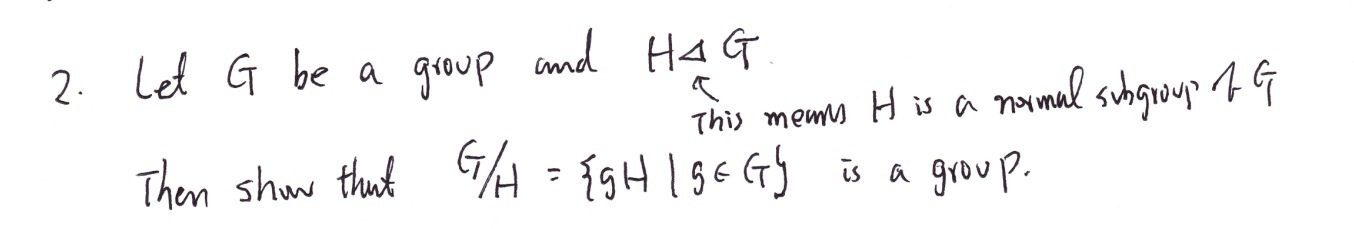 2. Let G be a group and H ⊲ G.
This means H is a normal subgroup of G
Then show that G/H = {gH | g ∈ G} is a group.